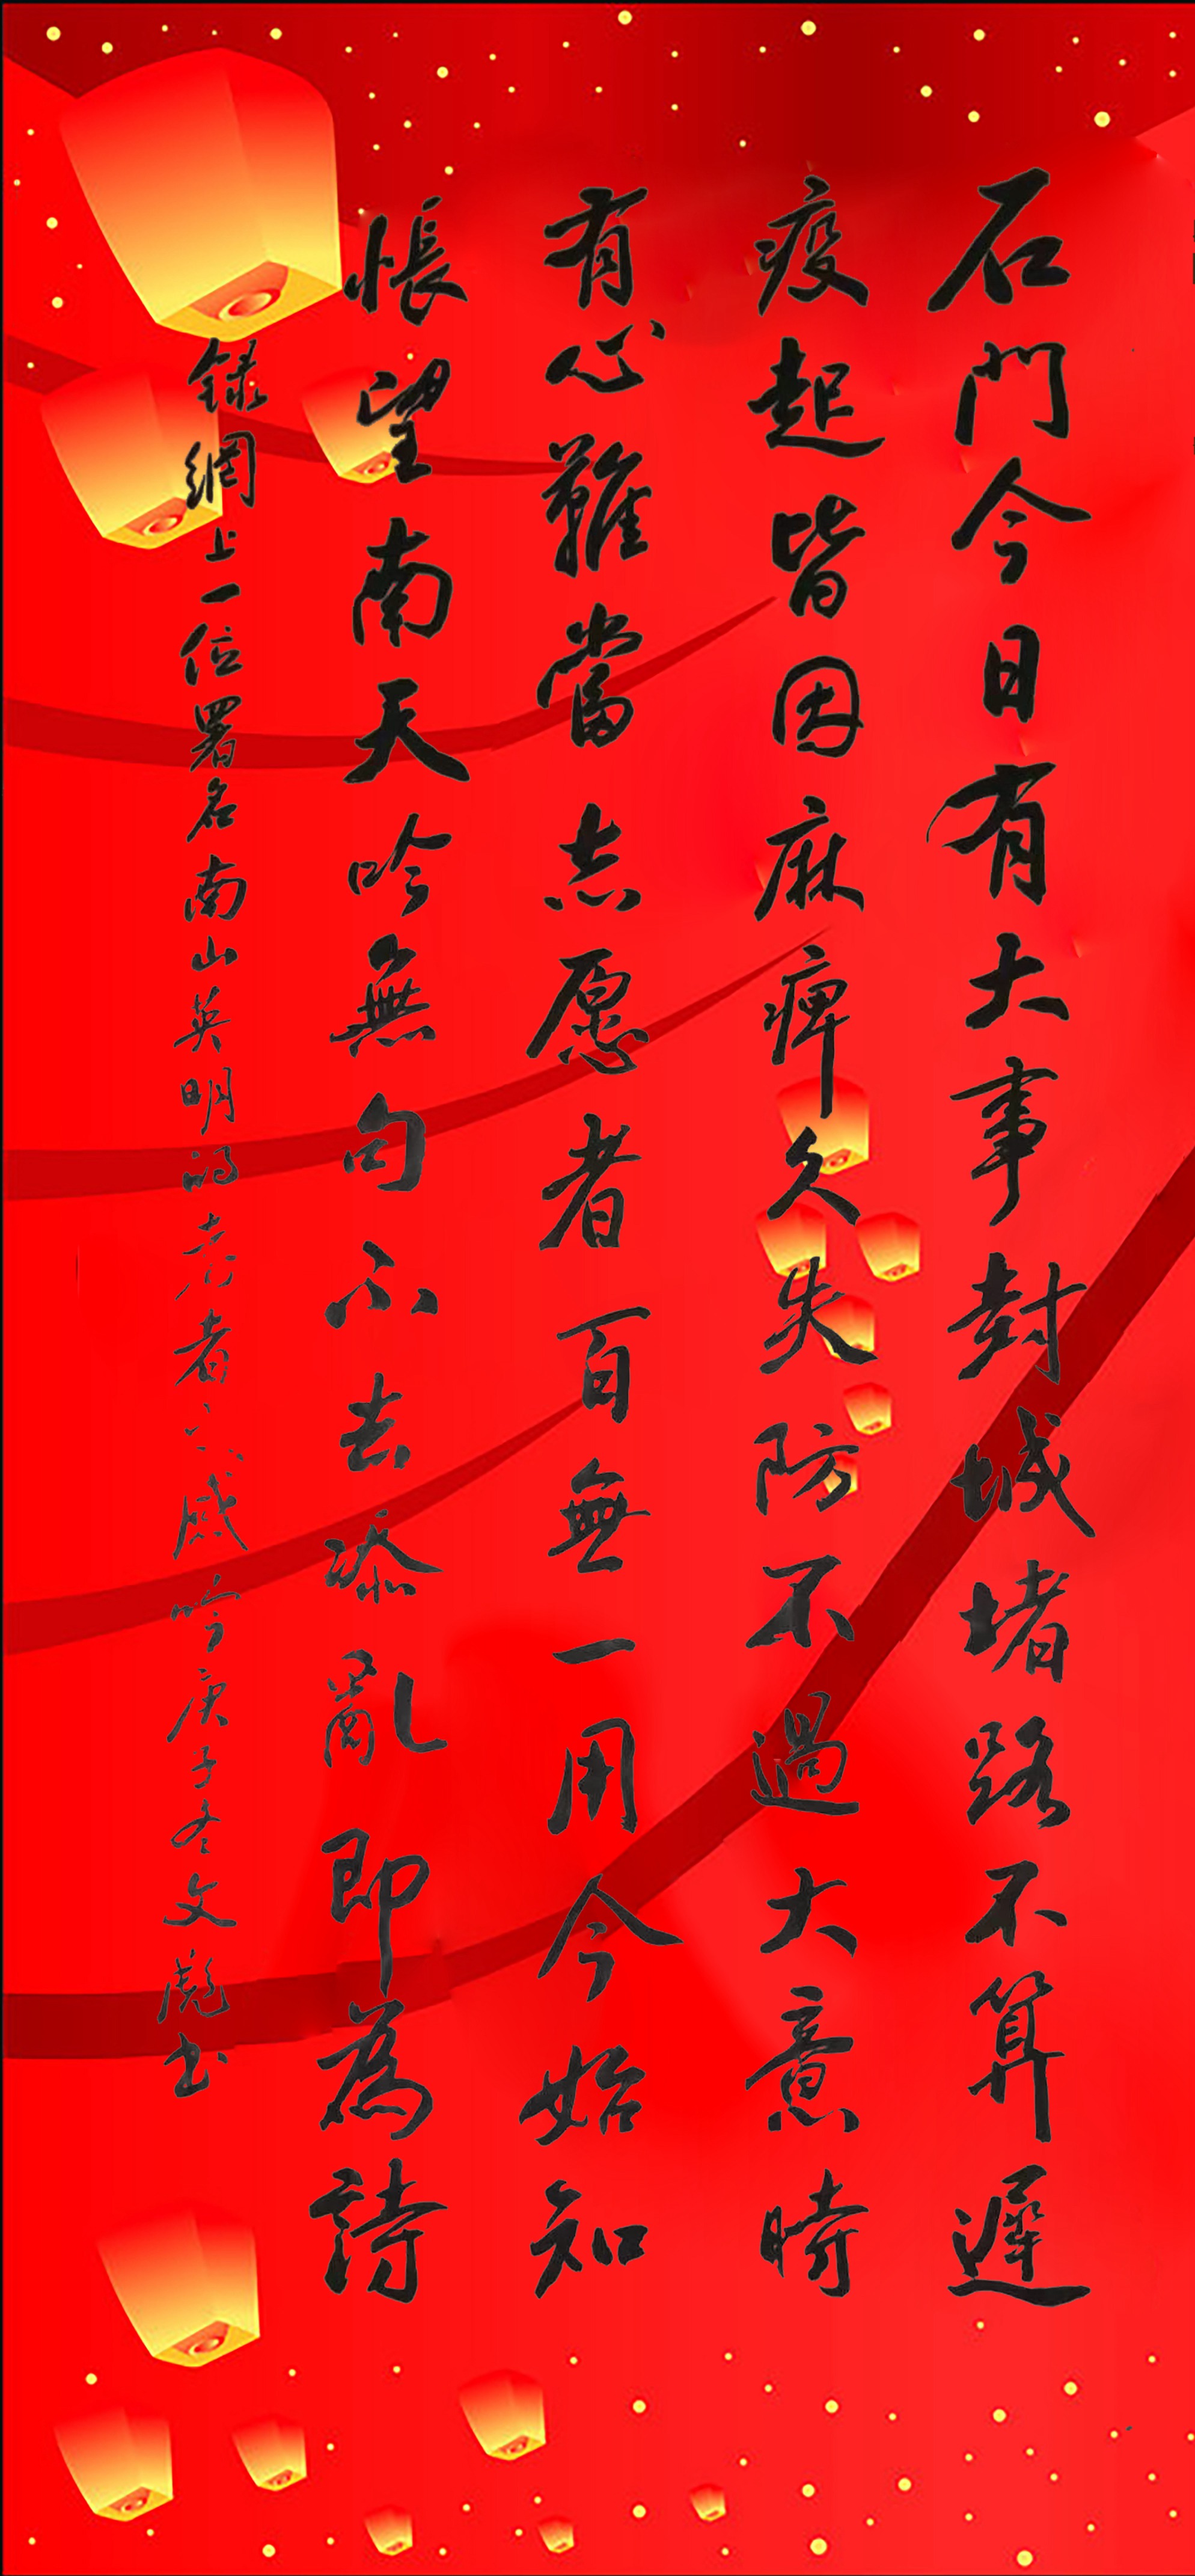 石門今日有大事封城堵路不算遲
疫起皆因麻痺久失防不過大意時
有心難當志愿者百無一用今始知
悵望南天吟無句不去添亂即為詩
錄網上一位署名南山英明的老者之感吟庚子冬文彪书